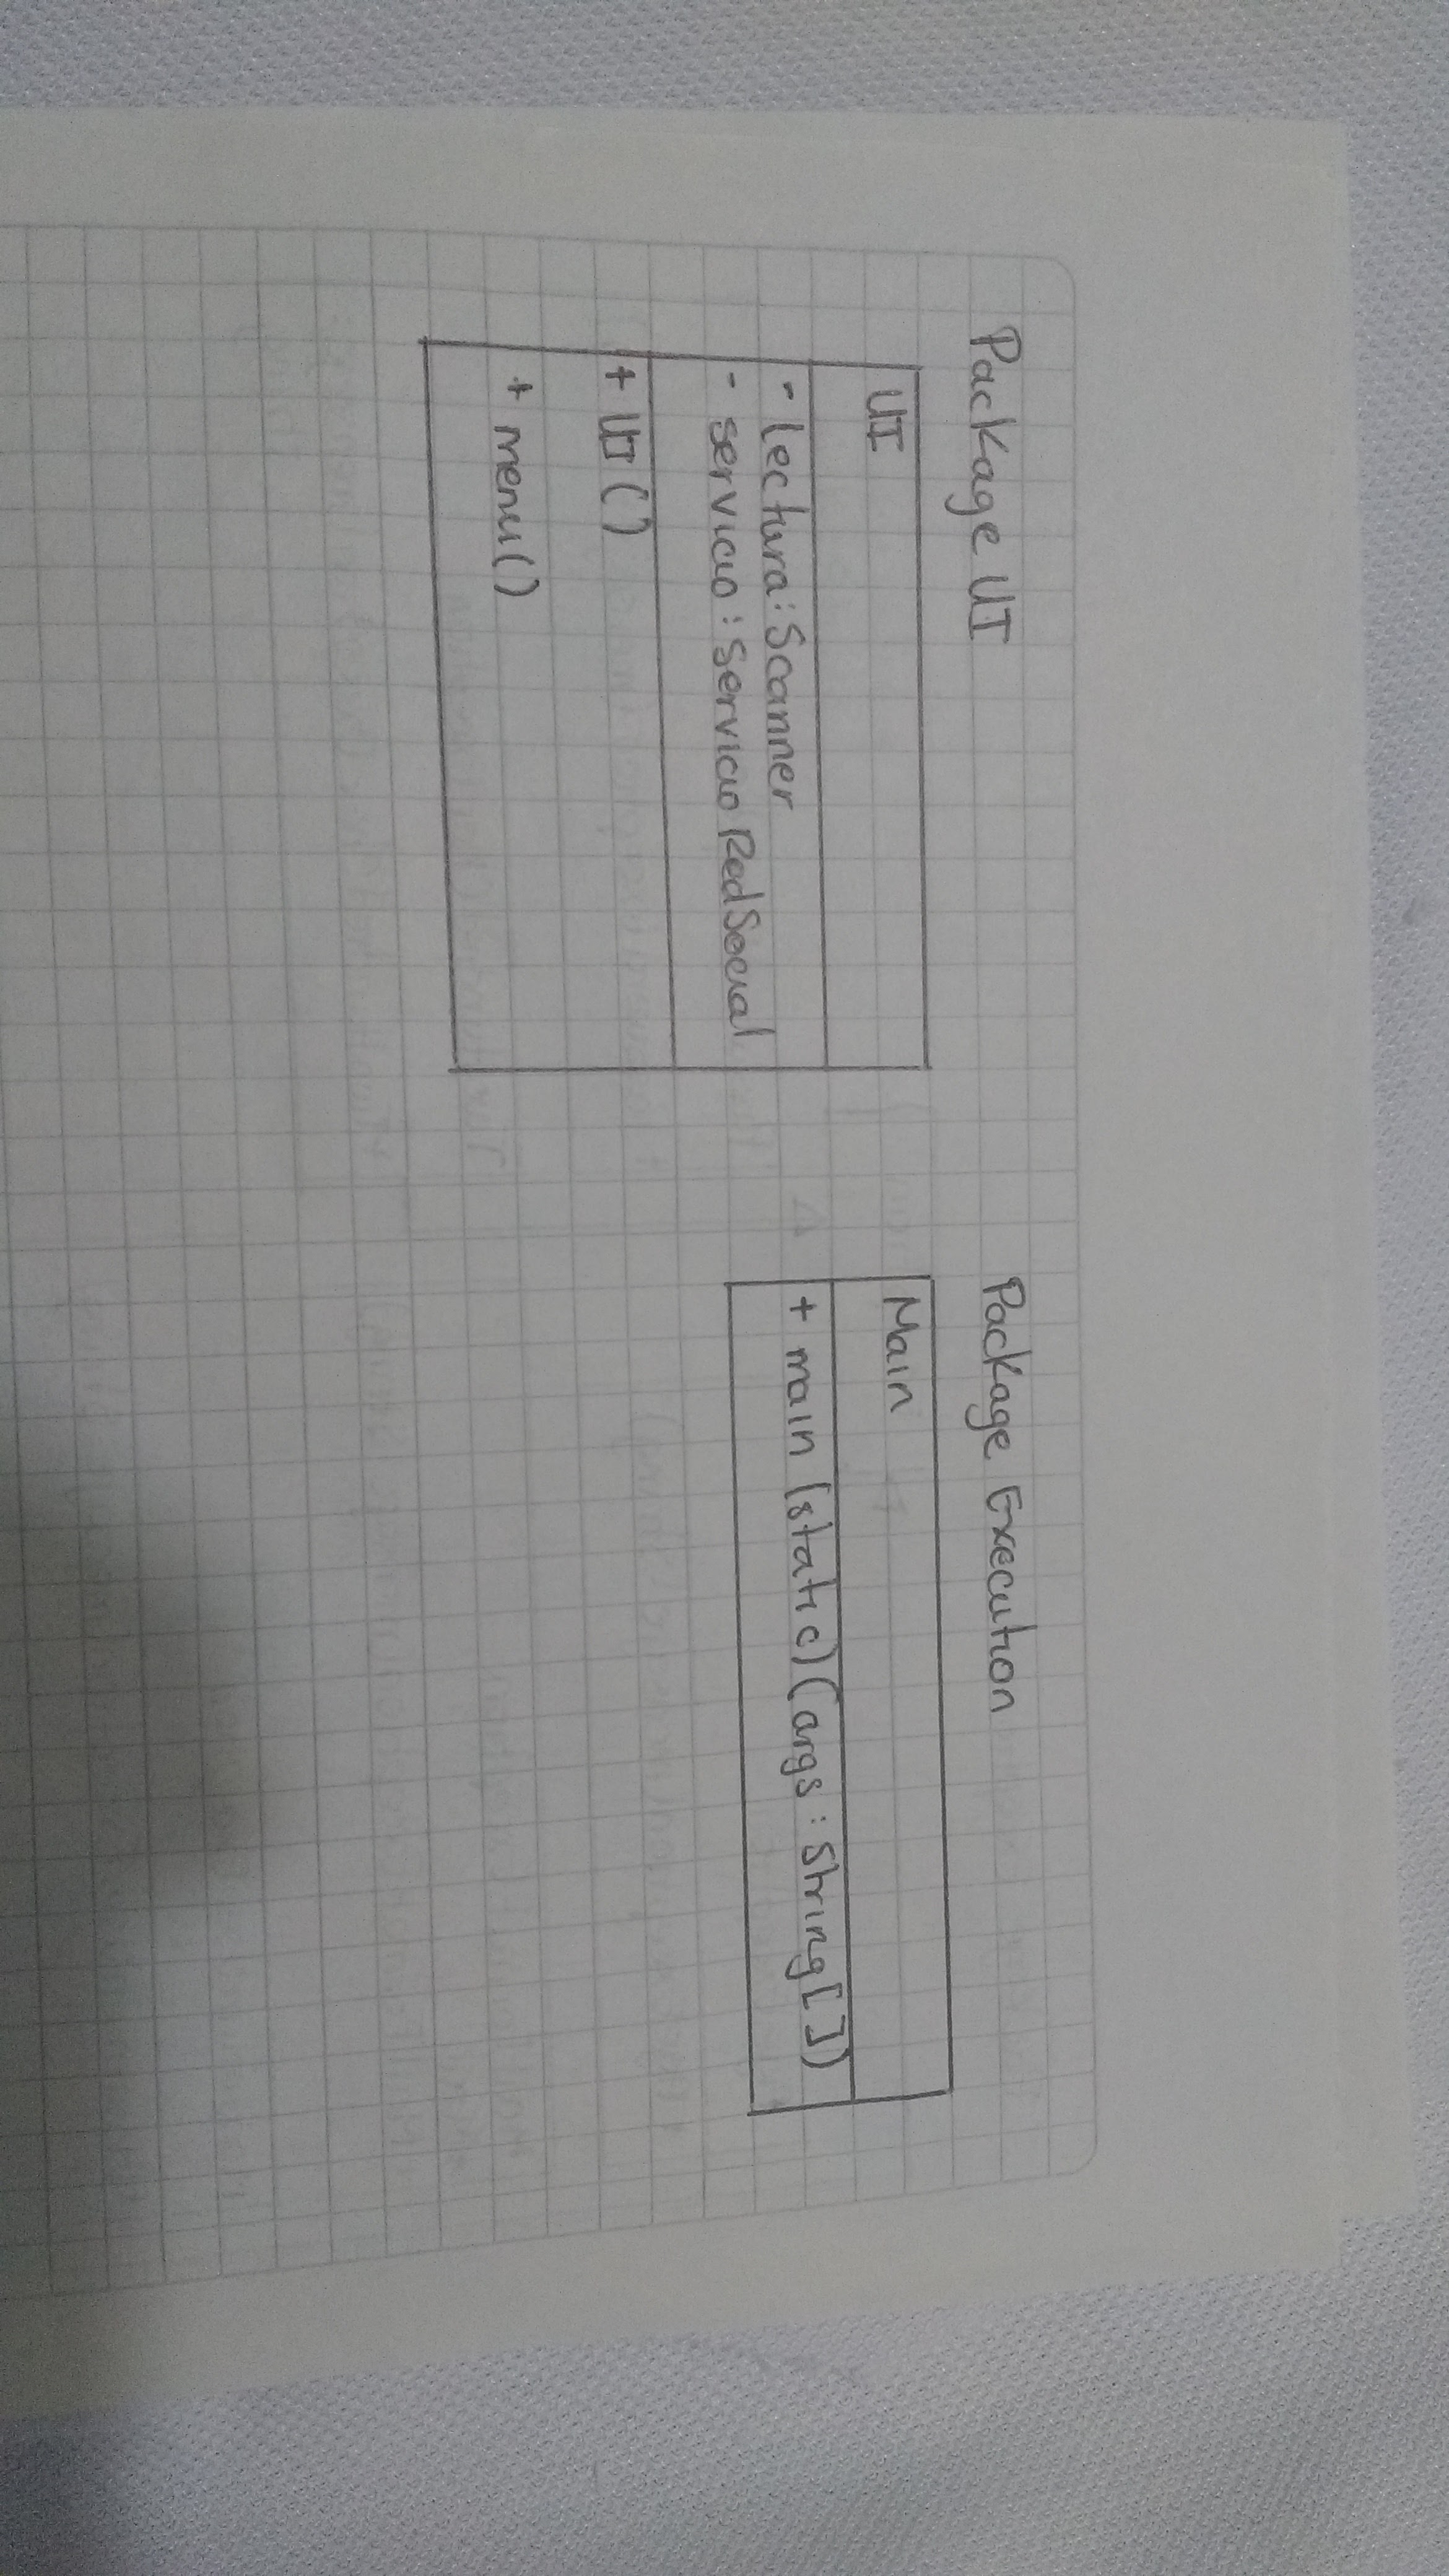 Package UI
UI
- lectura: Scanner
- servicio: Servicio RedSocial
+ UI()
+ menu()
Package Execution
Main
+ main (static)(args: String[])